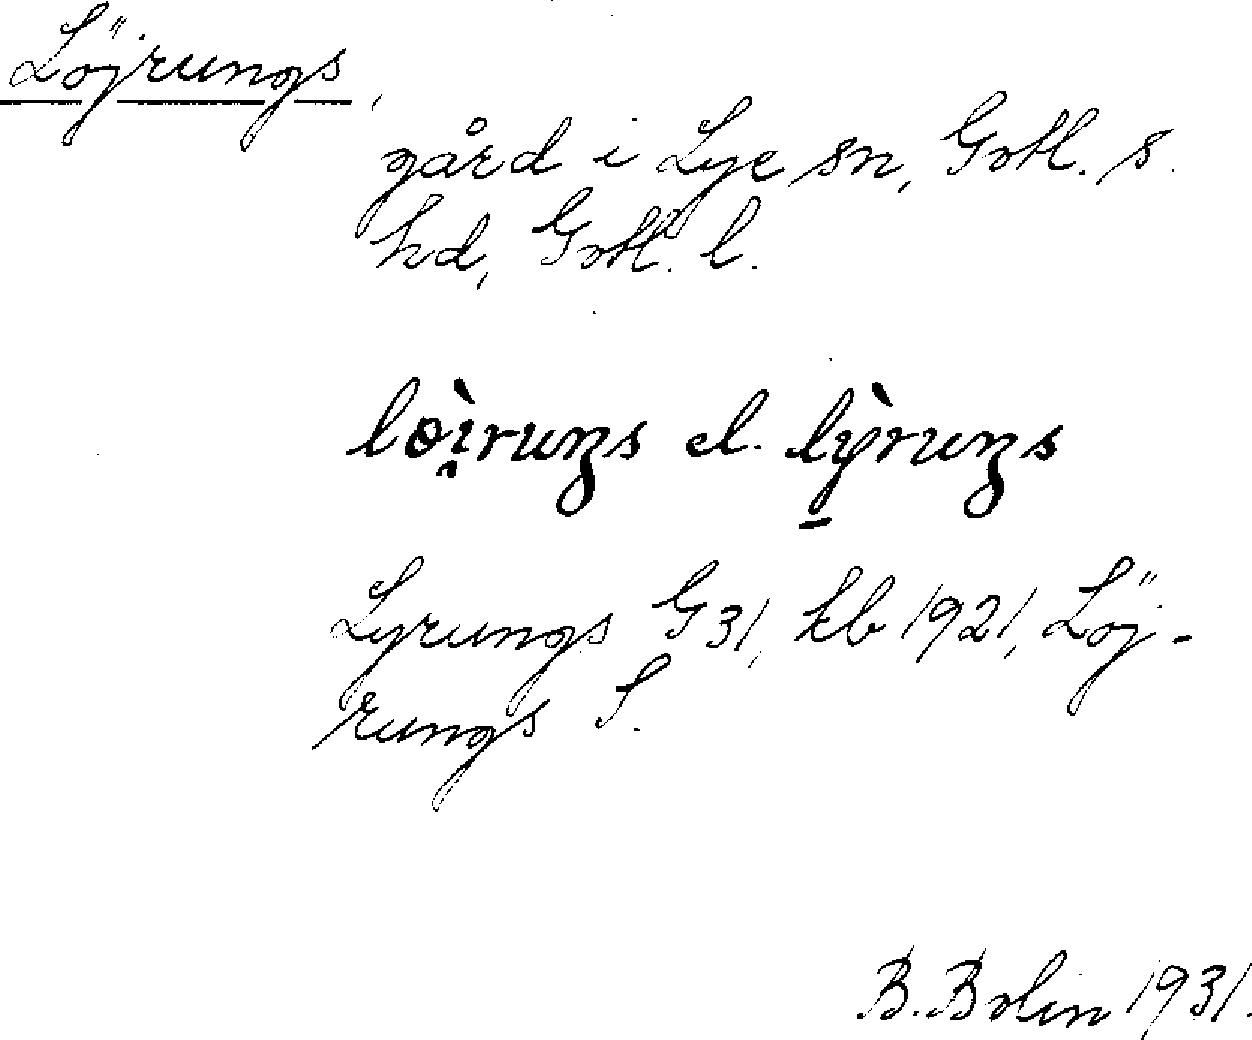 Löjrungs,
gård i Lye sn, Gotl. s.
hd, Gotl. l.
lɵı̯̀ruŋs el. lỳ̠ruŋs
Lyrungs G31, kb 1921, Löj-
rungs S.
B. Bolin 1931.